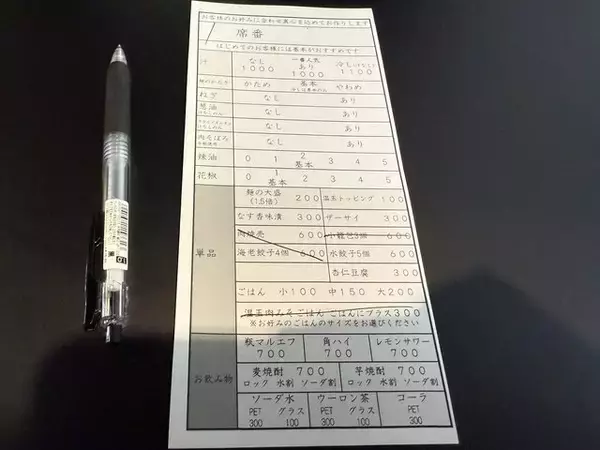 お客様のお好みに合わせ真心を込めてお作りします
席番
はじめてのお客様には基本がおすすめです
汁 なし 1000 一番人気 あり 1000 冷し(汁なし) 1100
麺のかたさ かため 基本 やわめ
ねぎ なし あり
葱油 なし あり
なし あり
肉そぼろ なし あり
辣油 0 1 2 基本 3 4 5
花椒 0 1 基本 2 3 4 5
単品
麺の大盛 (1.5倍) 200 温玉トッピング 100
なす香味漬 300 ザーサイ 300
肉焼売 600 小籠包3個 600
海老餃子4個 600 水餃子5個 600
杏仁豆腐 300
ごはん 小100 中150 大200
温玉肉みそごはん ごはんにプラス300
※お好みのごはんのサイズをお選びください
お飲み物
瓶マルエフ 700 角ハイ 700 レモンサワー 700
麦焼酎 700 芋焼酎 700
ロック 水割 ソーダ割 ロック 水割 ソーダ割
ソーダ水 ウーロン茶 コーラ
PET グラス PET グラス PET
300 100 300 100 300